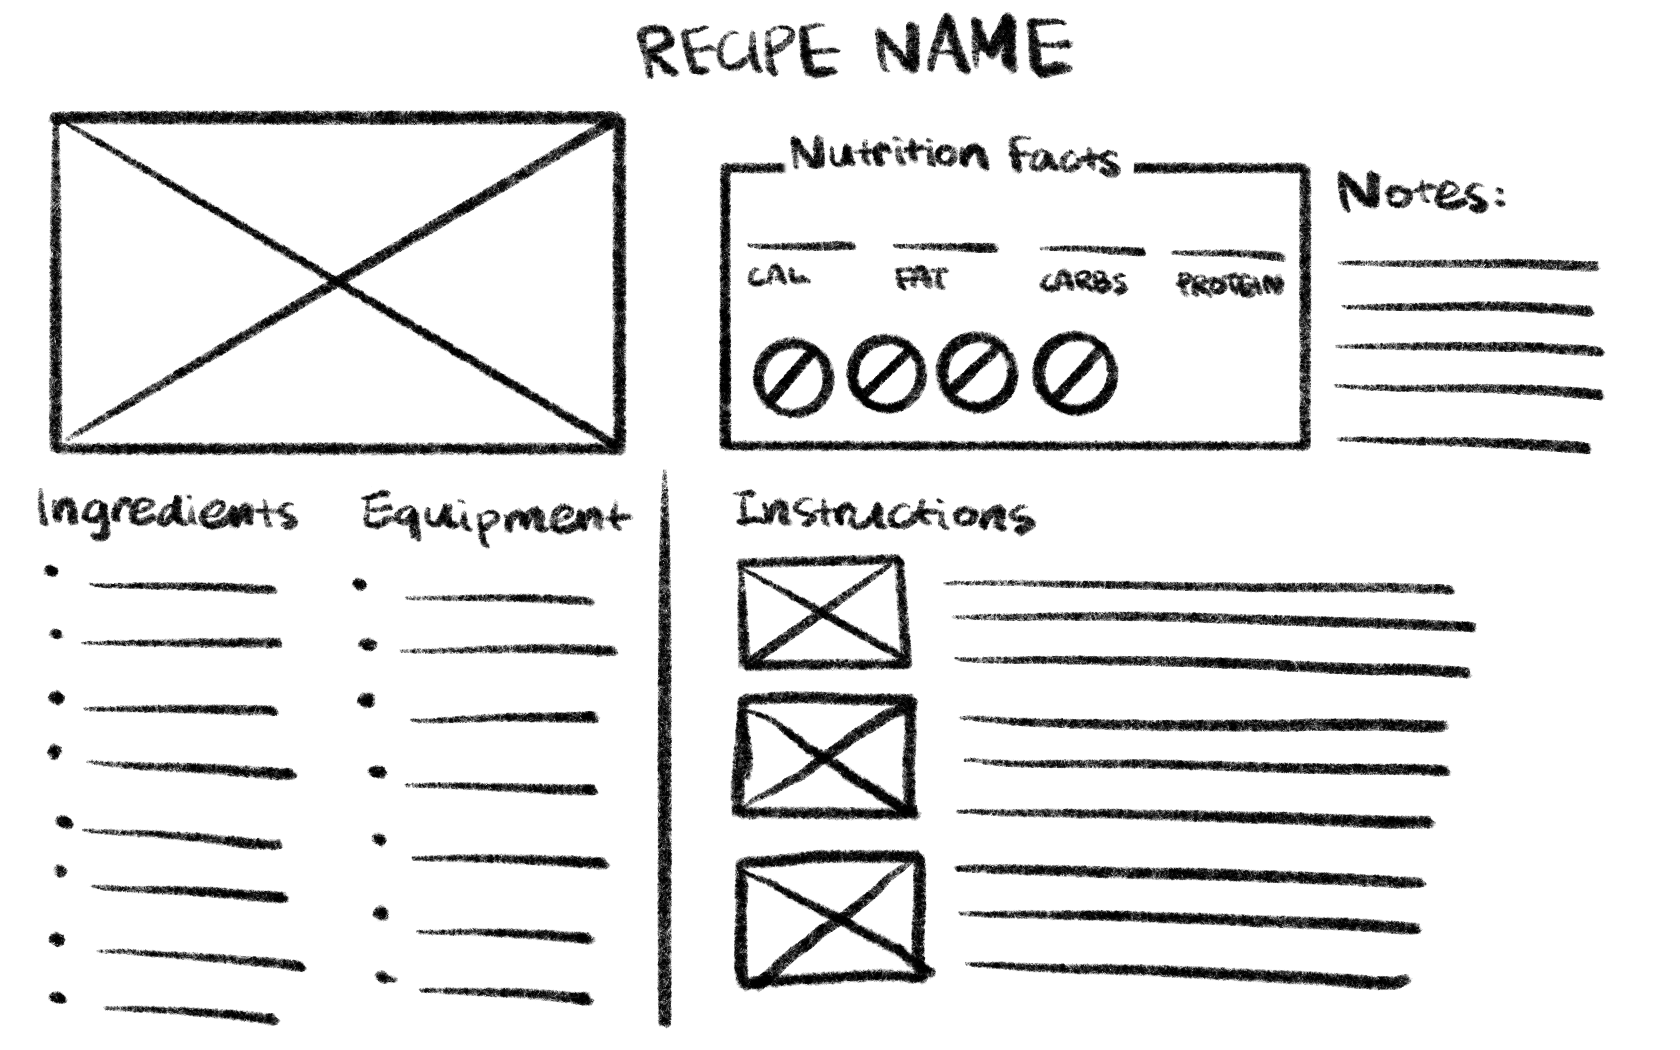 RECIPE NAME
Nutrition Facts
CAL FAT CARBS PROTEIN
Notes:
Ingredients
Equipment
Instructions